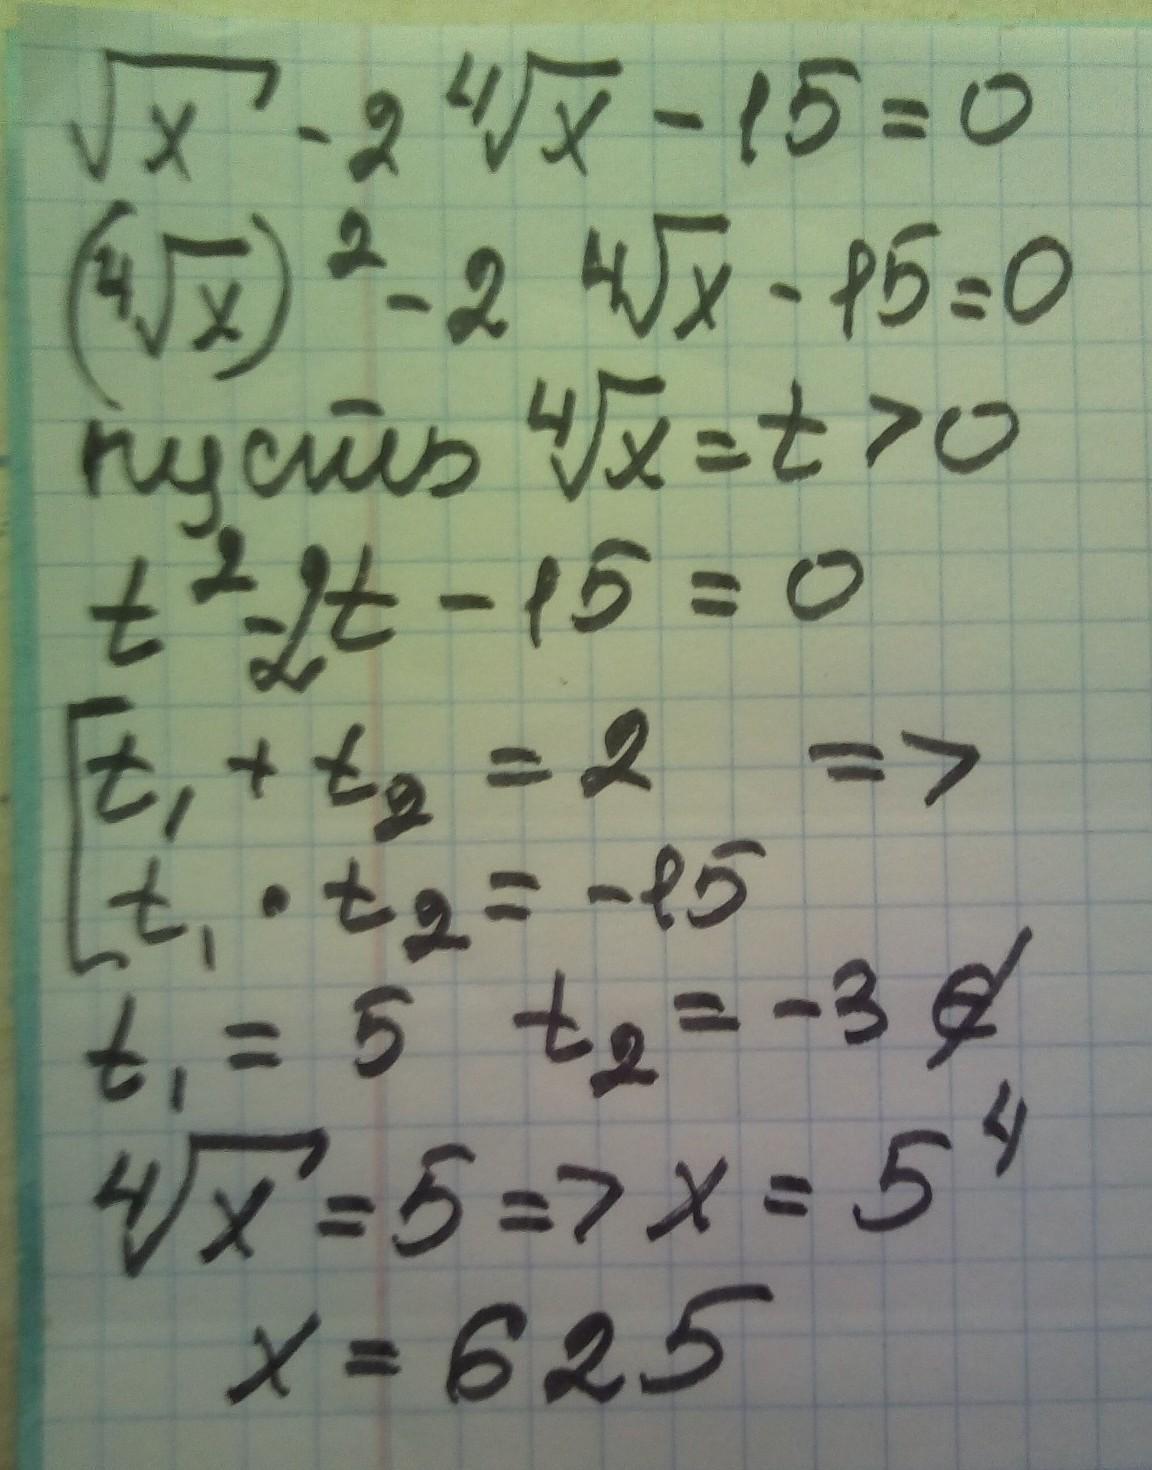 √x - 2 ⁴√x - 15 = 0
(⁴√x)² - 2 ⁴√x - 15 = 0
пусть ⁴√x = t > 0
t² - 2t - 15 = 0
[t₁ + t₂ = 2 =>
t₁ · t₂ = -15
t₁ = 5 t₂ = -3 ∉
⁴√x = 5 => x = 5⁴
x = 625